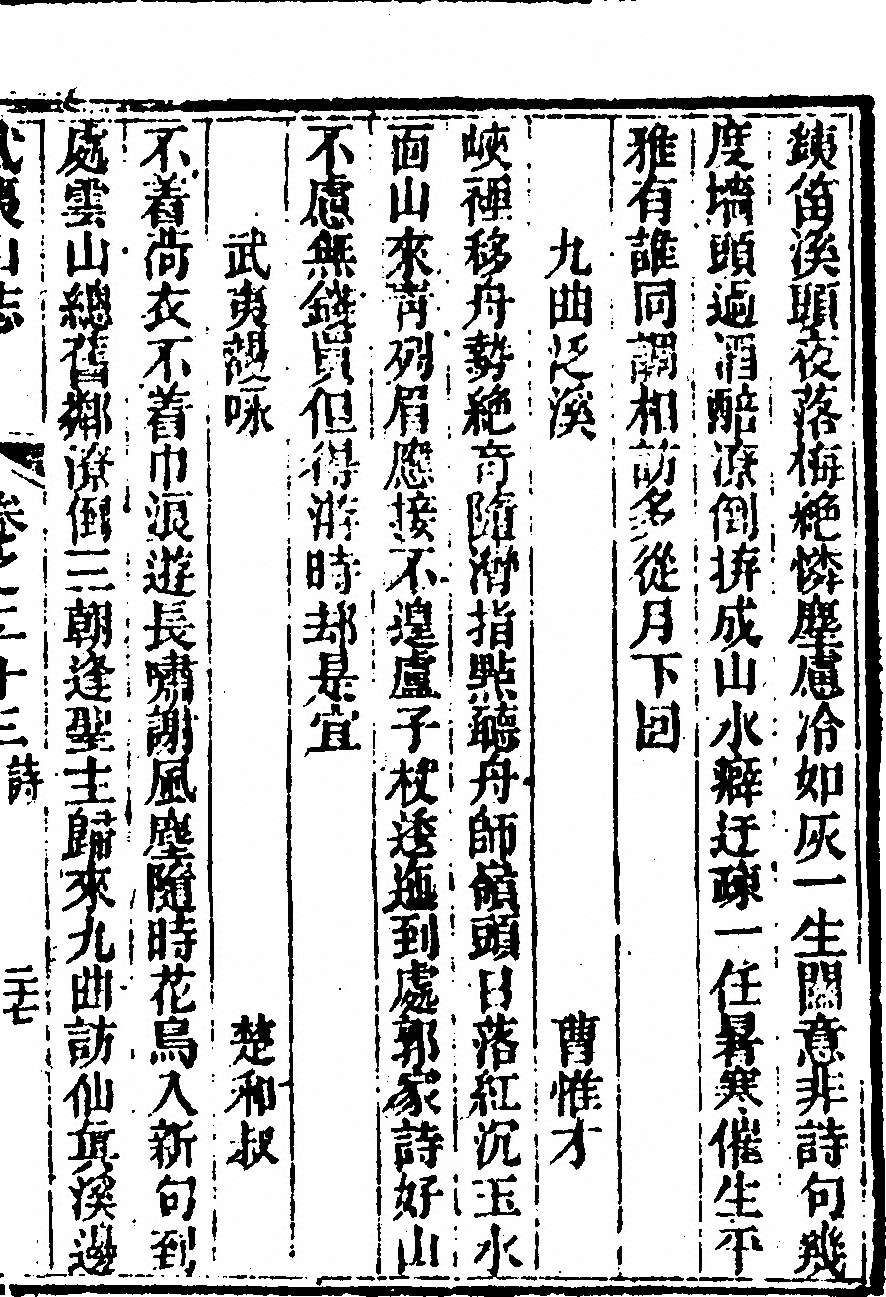 鐵笛溪頭夜落梅絶憐塵慮冷如灰一生關意非詩句幾
度墻頭過酒醅潦倒拚成山水癖迂疎一任暑寒催生平
雅有誰同調相訪多從月下回
九曲泛溪 曹惟才
峽裡移舟勢絶竒隨灣指點聽舟師嶺頭日落紅沉玉水
面山來青列眉應接不遑盧子杖逶迤到處郭家詩好山
不慮無錢買但得游時却是宜
武夷謾咏 楚和叔
不着荷衣不着巾浪遊長嘯謝風塵隨時花鳥入新句到
處雲山總舊鄰潦倒三朝逢聖主歸來九曲訪仙真溪邊
武夷山志 卷之二十三 詩 二十七